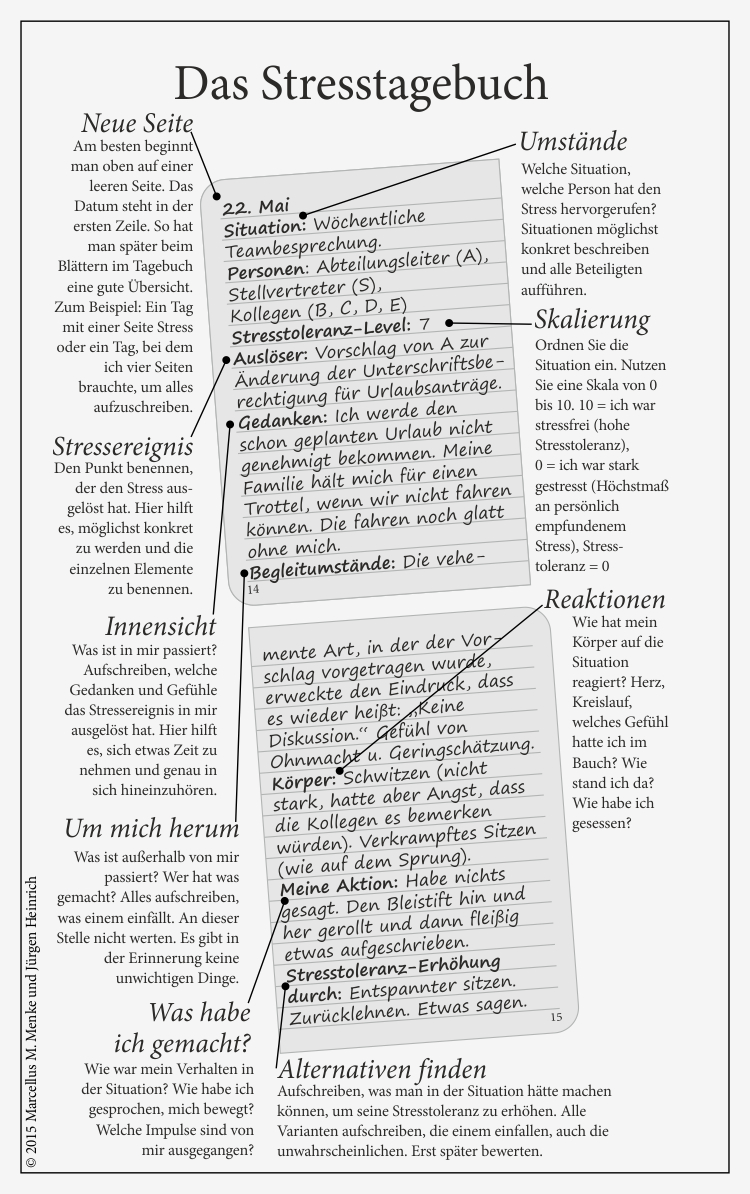 Das Stresstagebuch
Neue Seite
Am besten beginnt
man oben auf einer
leeren Seite. Das
Datum steht in der
ersten Zeile. So hat
man später beim
Blättern im Tagebuch
eine gute Übersicht.
Zum Beispiel: Ein Tag
mit einer Seite Stress
oder ein Tag, bei dem
ich vier Seiten
brauchte, um alles
aufzuschreiben.
Stressereignis
Den Punkt benennen,
der den Stress aus-
gelöst hat. Hier hilft
es, möglichst konkret
zu werden und die
einzelnen Elemente
zu benennen.
Innensicht
Was ist in mir passiert?
Aufschreiben, welche
Gedanken und Gefühle
das Stressereignis in mir
ausgelöst hat. Hier hilft
es, sich etwas Zeit zu
nehmen und genau in
sich hineinzuhören.
Um mich herum
Was ist außerhalb von mir
passiert? Wer hat was
gemacht? Alles aufschreiben,
was einem einfällt. An dieser
Stelle nicht werten. Es gibt in
der Erinnerung keine
unwichtigen Dinge.
Was habe
ich gemacht?
Wie war mein Verhalten in
der Situation? Wie habe ich
gesprochen, mich bewegt?
Welche Impulse sind von
mir ausgegangen?
22. Mai
Situation: Wöchentliche
Teambesprechung.
Personen: Abteilungsleiter (A),
Stellvertreter (S),
Kollegen (B, C, D, E)
Stresstoleranz-Level: 7
Auslöser: Vorschlag von A zur
Änderung der Unterschriftsbe-
rechtigung für Urlaubsanträge.
Gedanken: Ich werde den
schon geplanten Urlaub nicht
genehmigt bekommen. Meine
Familie hält mich für einen
Trottel, wenn wir nicht fahren
können. Die fahren noch glatt
ohne mich.
Begleitumstände: Die vehe-
14
mente Art, in der der Vor-
schlag vorgetragen wurde,
erweckte den Eindruck, dass
es wieder heißt: „Keine
Diskussion.“ Gefühl von
Ohnmacht u. Geringschätzung.
Körper: Schwitzen (nicht
stark, hatte aber Angst, dass
die Kollegen es bemerken
würden). Verkrampftes Sitzen
(wie auf dem Sprung).
Meine Aktion: Habe nichts
gesagt. Den Bleistift hin und
her gerollt und dann fleißig
etwas aufgeschrieben.
Stresstoleranz-Erhöhung
durch: Entspannter sitzen.
Zurücklehnen. Etwas sagen.
15
Umstände
Welche Situation,
welche Person hat den
Stress hervorgerufen?
Situationen möglichst
konkret beschreiben
und alle Beteiligten
aufführen.
Skalierung
Ordnen Sie die
Situation ein. Nutzen
Sie eine Skala von 0
bis 10. 10 = ich war
stressfrei (hohe
Stresstoleranz),
0 = ich war stark
gestresst (Höchstmaß
an persönlich
empfundenem
Stress), Stress-
toleranz = 0
Reaktionen
Wie hat mein
Körper auf die
Situation
reagiert? Herz,
Kreislauf,
welches Gefühl
hatte ich im
Bauch? Wie
stand ich da?
Wie habe ich
gesessen?
Alternativen finden
Aufschreiben, was man in der Situation hätte machen
können, um seine Stresstoleranz zu erhöhen. Alle
Varianten aufschreiben, die einem einfallen, auch die
unwahrscheinlichen. Erst später bewerten.
© 2015 Marcellus M. Menke und Jürgen Heinrich